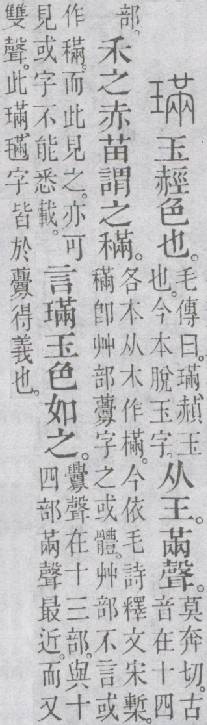 璊玉䞓色也。毛傳曰。璊、赬玉也。今本脫玉字。从王。㒼聲。莫奔切。古音在十四
部。禾之赤苗謂之䅼。各本从木作樠。今依毛詩釋文宋槧。䅼卽艸部虋字之或體。艸部不言或
作䅼。而此見之。亦可見或字不能悉載。言璊玉色如之。虋聲在十三部。與十四部㒼聲最近。而又
雙聲。此璊𣯩字皆於虋得義也。